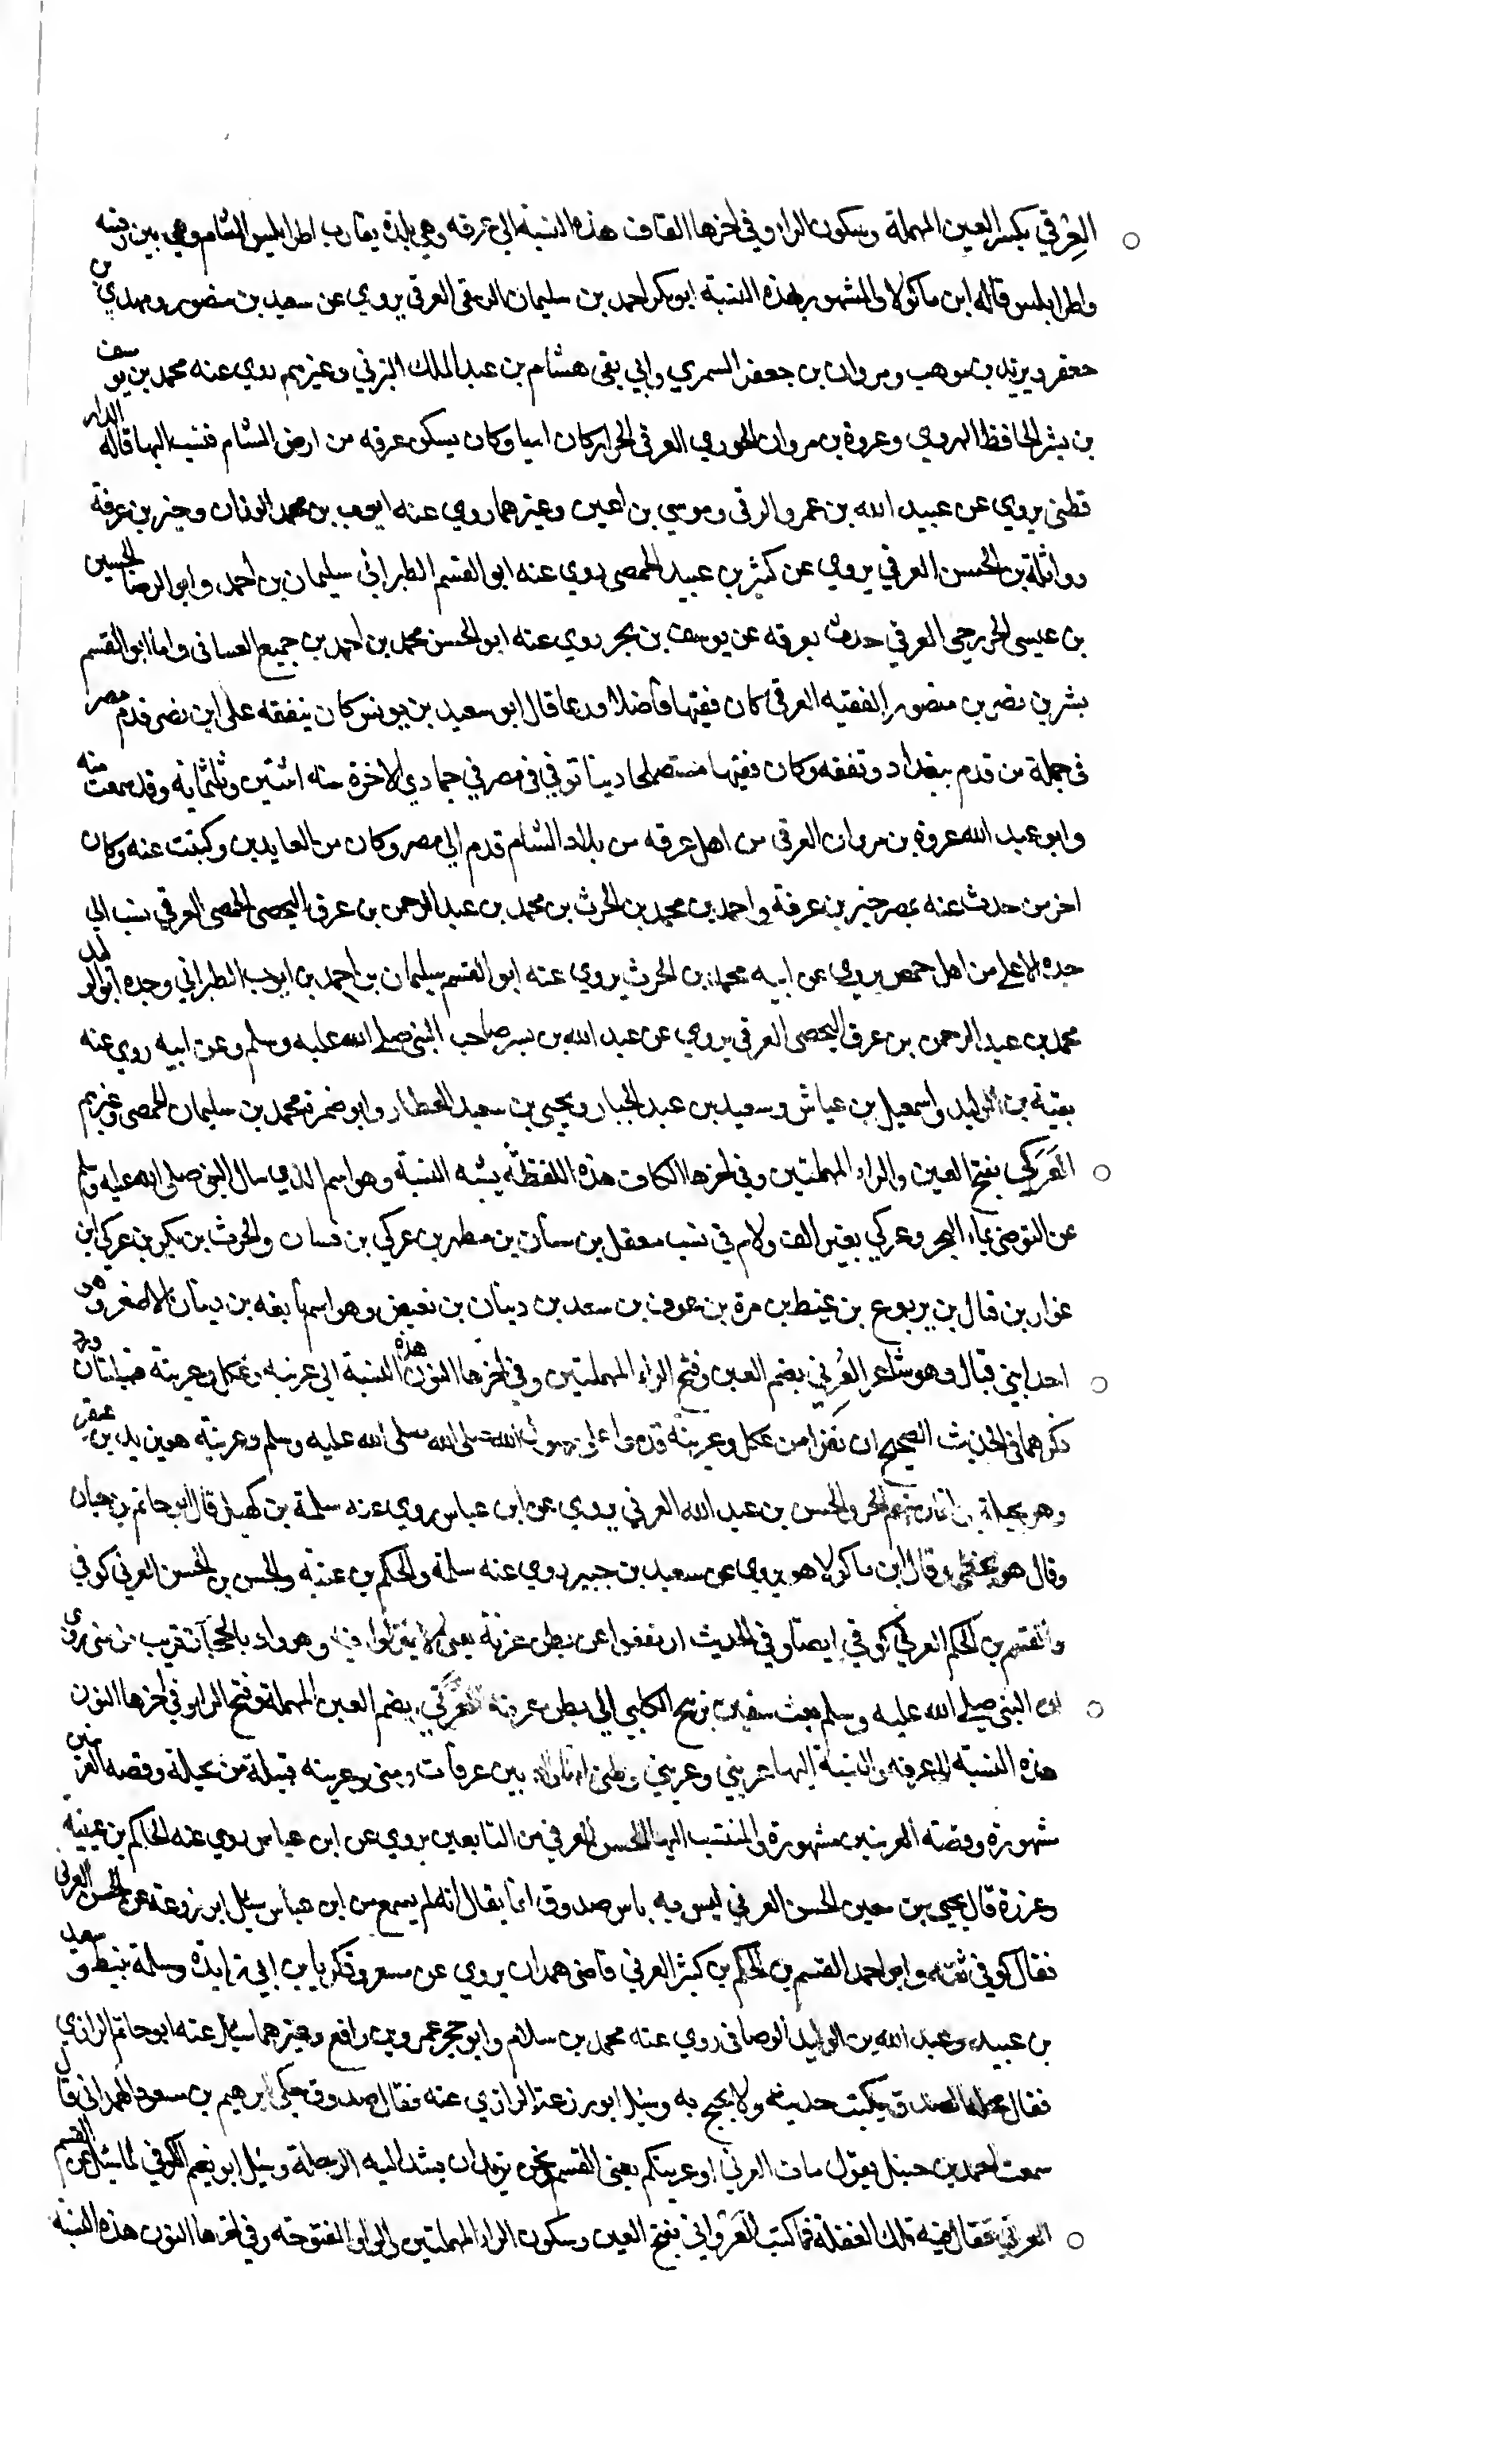 العِرقي بكسر العين المهملة وسكون الراء وفي اخرها القاف هذه النسبة الى عرقه وهي بلدة يقارب اطرابلس الشام وهي بين رفنيه
واطرابلس قاله ابن ماكولا والمشهور بهذه النسبة ابو بكر احمد بن سليمان الرقى العرقي يروي عن سعيد بن منصور ومهدي بن
جعفر ويزيد بن موهب ومروان بن جعفر السمري وابي بقى هشام بن عبد الملك اليزني وغيرهم روي عنه محمد بن يوسف
بن بشر الحافظ الهروي وعروة بن مروان العرقى الجرار كان اميا وكان يسكن عرقه من ارض الشام فنسب اليها قاله الدار
قطنى يروي عن عبيد الله بن عمرو الرقى وموسي بن اعين وغيرهما روي عنه ايوب بن محمد الوزان وخير بن عرفة
وواثلة بن الحسن العرقي يروي عن كثير بن عبيد الحمصى روي عنه ابو القسم الطبراني سليمان بن احمد وابو الرضا الحسين
بن عيسى الخزرجي العرقي حدث بعرقه عن يوسف بن بحر روي عنه ابو الحسن محمد بن احمد بن جميع الغسانى واما ابو القسم
بشر بن نصر بن منصور الفقيه العرقى كان فقيها فاضلا ورعا قال ابو سعيد بن يونس كان يتفقه على ابن نصر قدم مصر
فى جملة من قدم ببغداد وتفقه وكان فقيها دينا توفي فى مصر في جمادي الاخرة سنه اثنتين وثلثماية وقد سمعت منه
وابو عبد الله عروة بن مروان العرقى من اهل عرقه من بلاد الشام قدم الى مصر وكان من العابدين وكتبت عنه وكان
اخر من حدث عنه بمصر خير بن عرفة واحمد بن محمد بن الحرث بن محمد بن عبد الرحمن بن عرق اليحصبى الحمصى العرقي نسب الى
جده الاعلى من اهل حمص يروي عن ابيه محمد بن الحرث يروي عنه ابو القسم سليمان بن احمد بن ايوب الطبراني وجده ابو الوليد
محمد بن عبد الرحمن بن عرق اليحصبى العرقي يروي عن عبد الله بن بسر صاحب النبى صلى الله عليه وسلم وعن ابيه روي عنه
بقية بن الوليد واسمعيل بن عياش وسعيد بن عبد الجبار ويحيى بن سعيد العطار وابو ضمرة محمد بن سليمان الحمصى وغيرهم
العَرَكي بفتح العين والراء المهملتين وفي اخرها الكاف هذه اللفظة يشبه النسبة وهو اسم الذي سال النبى صلى الله عليه وسلم
عن التوضى بماء البحر وعركي بغير الف ولام في نسب معقل بن سنان بن مطهر بن عركي بن فتيان والحرث بن بكير بن عركي بن
بن قتال بن يربوع بن غيظ بن مرة بن عوف بن سعد بن ديبان بن بغيض وهو اسم نابغه بن ديبان الاصغر وهو
احد ابني قتال وهو شاعر العُرني بضم العين وفتح الراء المهملتين وفي اخرها النون هذه النسبة الى عرينه وعكل وعرينة قبيلتان ورد
ذكرهما في الحديث الصحيح ان نفرا من عكل وعرينة قدموا على رسول الله صلى الله عليه وسلم وعرينة هو بن يد بن عبقر
وهو بجيلة بن انمار منهم الحسن بن عبد الله العرني يروي عن ابن عباس روي عنه سلمة بن كهيل قال ابو حاتم بن حبان
وقال هو وقال ابن ماكولا هو يروي عن سعيد بن جبير روي عنه سلمة والحكم بن عتبه والحسن بن الحسن العرني كوفي
والقسم بن الحكم العرني كوفي ايضا وفي الحديث ارتفعوا عن بطن عرنة يعنى لا وهو واد بالحجاز قريب من منى روي
ان النبى صلى الله عليه وسلم بعث سفين بن الكلبي الى بطن عرنة العُرَني بضم العين المهملة وفتح الراء وفي اخرها النون
هذه النسبة الى عرينه والنسبة اليها عريني وعرني بين عرفات ومنى وعرينه قبيلة من بجيلة وقصه العرنيين
شهورة وقصة العرنيين مشهورة والمنتسب اليها الحسن العرني من التابعين يروي عن ابن عباس روي عنه الحاكم بن عيينة
وعزرة قال يحيى بن معين الحسن العرني ليس به باس صدوق انما يقال انه لم يسمع من ابن عباس سئل ابو زرعة عن الحسن العرني
فقال كوفي ثقة وابو احمد القسم بن الحكم بن كثير العرني قاضى همدان يروي عن مسعر وزكريا بن ابي زايدة وسلمة بن نبيط وسعيد
بن عبيد وعبد الله بن الوليد الوصافى روي عنه محمد بن سلام وابو حجر عمرو بن رافع وغيرهما سئل عنه ابو حاتم الرازي
فقال محله الصدق يكتب حديثه ولا يحتج به وسئل ابو زرعة الرازي عنه فقال صدوق حكى ابرهيم بن مسعود الهمداني قال
سمعت احمد بن حنبل يقول مات العرني او عرينكم يعنى القسم نحن نريد ان يشد اليه الرحلة وسئل ابو نعيم الكوفي لما سئل عن القسم
العرني فقال فيه تلك الغفلة فما كتب العَرْواني بفتح العين وسكون الراء المهملتين والواو المفتوحة وفي اخرها النون هذه النسبة